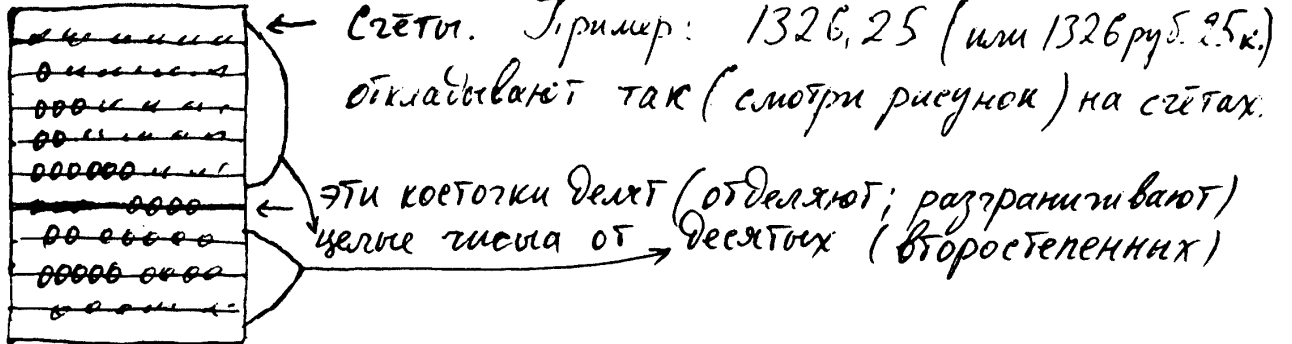 Счёты. Пример: 1326,25 (или 1326 руб. 25 к.)
откладывают так (смотри рисунок) на счётах.
эти косточки делят (отделяют; разграничивают)
целые числа от десятых (второстепенных)